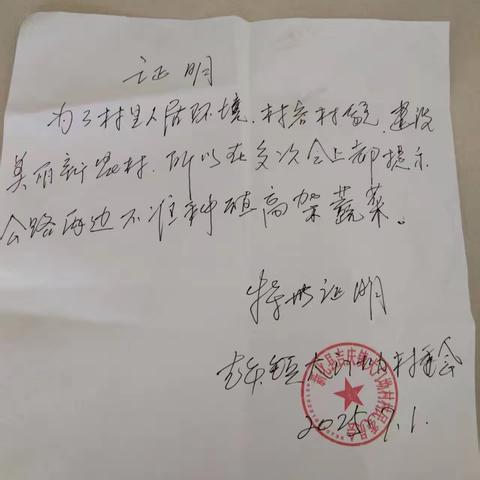 证明
为了村里人居环境、村容村貌,建设
美丽新农村,所以在多次会上都提示
公路两边不准种植高架蔬菜。
特此证明
吉庆镇大 村委会
2025.7.1.